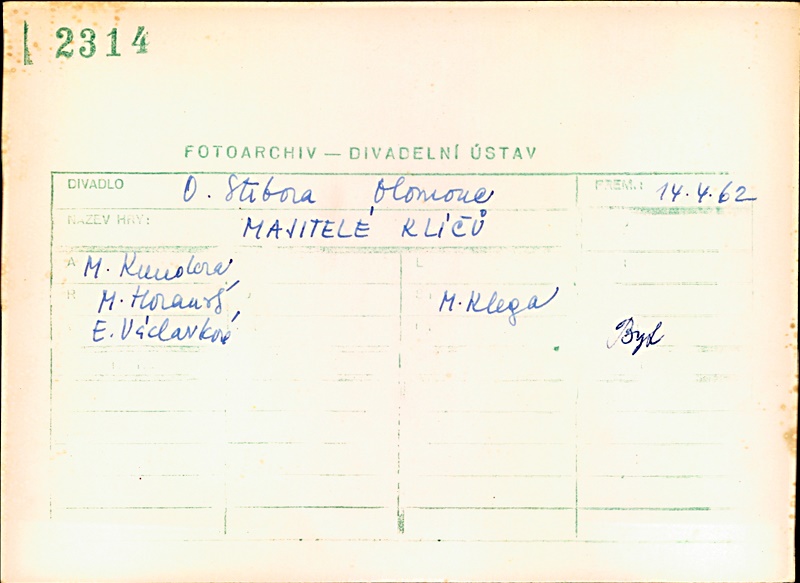 2314
FOTOARCHIV — DIVADELNÍ ÚSTAV
DIVADLO O. Stibora Olomouc PREM.: 14.4.62
NÁZEV HRY: MAJITELÉ KLÍČŮ
A M. Kundera L
R M. Horanský M. Klega
E. Václavková Byl